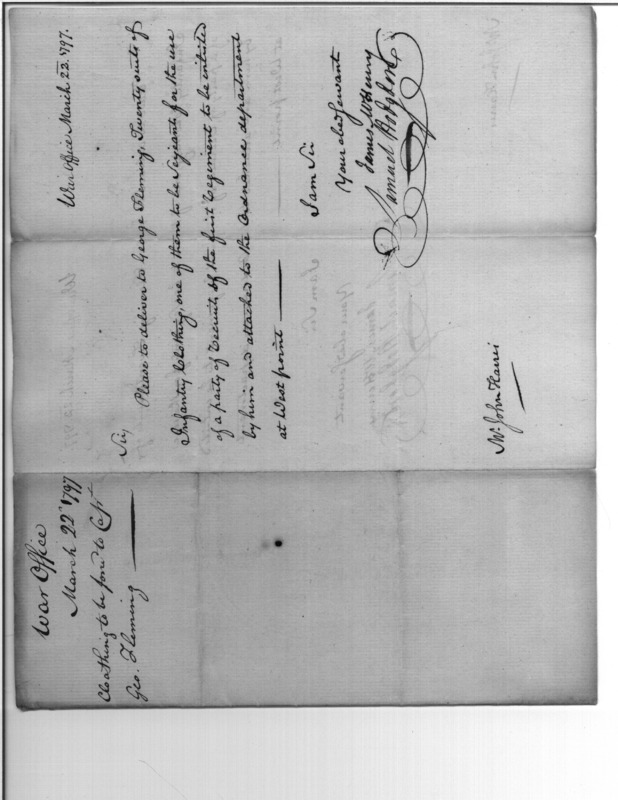 War Office March 22. 1797.
Sir,
Please to deliver to George Fleming, Twenty suits of
Infantry Clothing, one of them to be Serjeants for the use
of a party of recruits of the first regiment to be inlisted
by him and attached to the Ordnance department
at West point
I am Sir
Your obed Servant
James McHenry
Samuel Hodgdon
Mr. John Harris
War Office
March 22d 1797
Cloathing to be forwd to Capt
Geo. Fleming